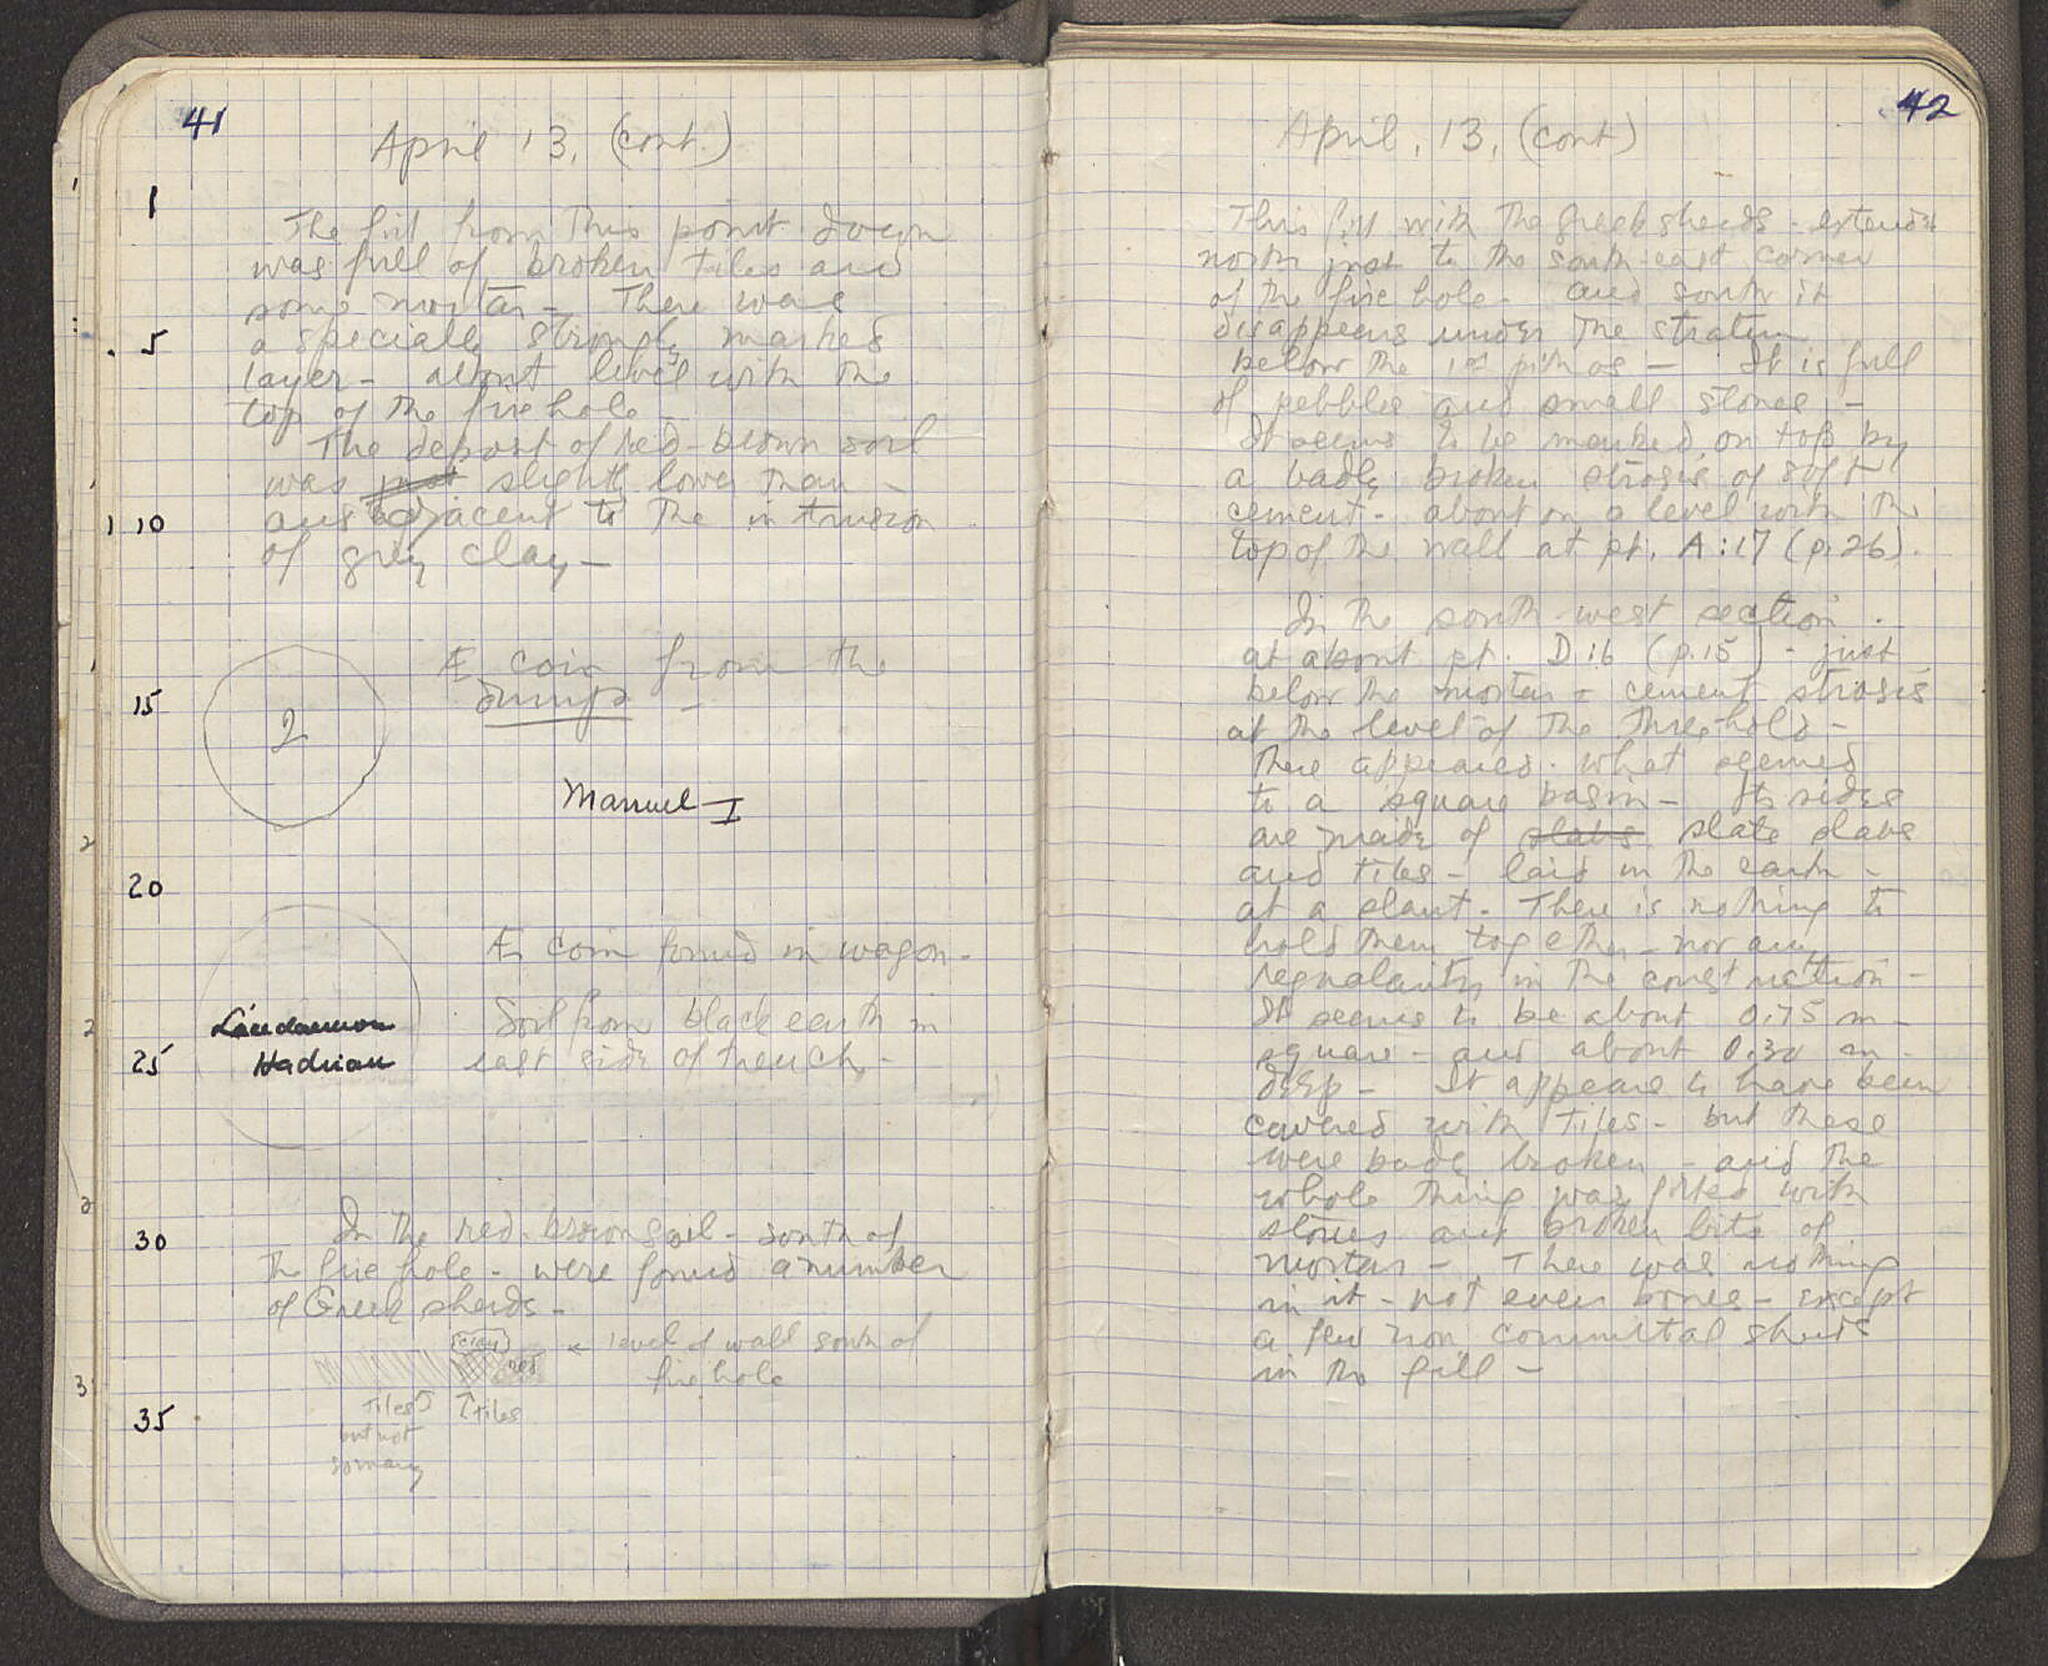 41
April 13, (cont.)
1
The fill from this point down
was full of broken tiles and
some mortar – There was
5
a specially strongly marked
layer – about level with the
top of the fire hole –
The deposit of red-brown soil
was just slightly lower than –
10
and adjacent to the intrusion
of grey clay –
Æ coin from the
15
dumps –
2
Manuel I
20
Æ coin found in wagon –
Lacedaemon
Soil from black earth in
25
Hadrian
east side of trench –
30
In the red-brown soil – south of
the fire hole – were found a number
of Greek sherds –
clay
red
← level of wall south of
fire hole
35
tiles
↑ tiles
but not
so many
42
April, 13, (cont)
This fill with the Greek sherds – extends
north just to the south-east corner
of the fire hole – and south it
disappears under the stratum
below the 1st pithos – It is full
of pebbles and small stones –
It seems to be marked on top by
a badly broken strosis of soft
cement – about on a level with the
top of the wall at pt. A:17 (p. 26).
In the south-west section
at about pt. D:16 (p. 15) – just
below the mortar – cement strosis
at the level of the threshold –
there appeared what seemed
to a square basin – Its sides
are made of slabs slate slabs
and tiles – laid in the earth –
at a slant – There is nothing to
hold them together – nor any
regularity in the construction –
It seems to be about 0.75 m –
square – and about 0.30 m –
deep – It appears to have been
covered with tiles – but these
were badly broken – and the
whole thing was filled with
stones and broken bits of
mortar – There was nothing
in it – not even bones – except
a few non committal sherds
in the fill –